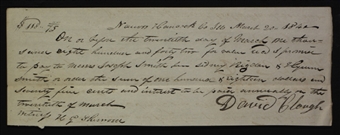 Nauvoo Hancock Co Ills March 20. 1840
On or before the twentieth day of March one thousand
eight hundred and forty two for value recd I promise
to pay to Joseph Smith Jun Sidney Rigdon & Hyrum
Smith or order the sum of one hundred & eighteen dollars and
Seventy five cents and interest to be paid annually on the
twentieth of March
David Clough